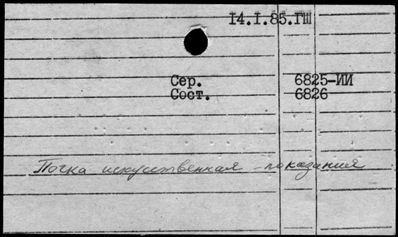 14.I.85.ГШ
Сер. 6825-ИИ
Сост. 6826
Почка искуственная показания